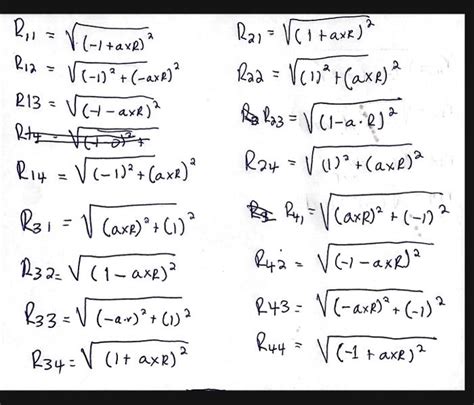 R₁₁ = √(-1+axR)²
R₁₂ = √(-1)² + (-axR)²
R13 = √(-1-axR)²
R₁₄ = √(-1)² + (axR)²
R₃₁ = √(axR)² + (1)²
R₃₂ = √(1-axR)²
R₃₃ = √(-a·r)² + (1)²
R₃₄ = √(1+axR)²
R₂₁ = √(1+axR)²
R₂₂ = √(1)² + (axR)²
R₂₃ = √(1-a·R)²
R₂₄ = √(1)² + (axR)²
R₄₁ = √(axR)² + (-1)²
R₄₂ = √(-1-axR)²
R₄₃ = √(-axR)² + (-1)²
R₄₄ = √(-1+axR)²